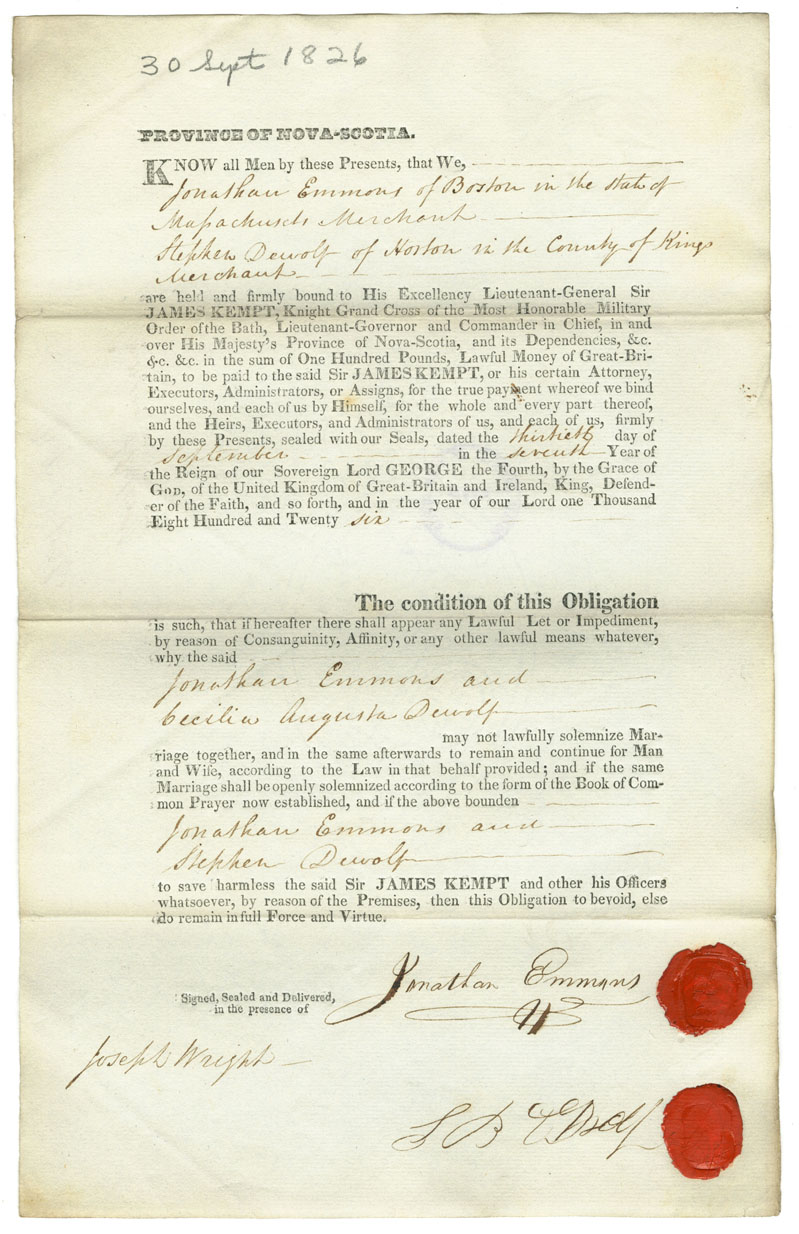 30 Sept 1826
PROVINCE OF NOVA-SCOTIA.
KNOW all Men by these Presents, that We,
Jonathan Emmons of Boston in the State of
Massachusets Merchant
Stephen Dewolf of Horton in the County of Kings
Merchant
are held and firmly bound to His Excellency Lieutenant-General Sir
JAMES KEMPT, Knight Grand Cross of the Most Honorable Military
Order of the Bath, Lieutenant-Governor and Commander in Chief, in and
over His Majesty's Province of Nova-Scotia, and its Dependencies, &c.
&c. &c. in the sum of One Hundred Pounds, Lawful Money of Great-Bri-
tain, to be paid to the said Sir JAMES KEMPT, or his certain Attorney,
Executors, Administrators, or Assigns, for the true payment whereof we bind
ourselves, and each of us by Himself, for the whole and every part thereof,
and the Heirs, Executors, and Administrators of us, and each of us, firmly
by these Presents, sealed with our Seals, dated the thirtieth day of
September in the seventh Year of
the Reign of our Sovereign Lord GEORGE the Fourth, by the Grace of
GOD, of the United Kingdom of Great-Britain and Ireland, King, Defend-
er of the Faith, and so forth, and in the year of our Lord one Thousand
Eight Hundred and Twenty six
The condition of this Obligation
is such, that if hereafter there shall appear any Lawful Let or Impediment,
by reason of Consanguinity, Affinity, or any other lawful means whatever,
why the said
Jonathan Emmons and
Cecilia Augusta Dewolf
may not lawfully solemnize Mar-
riage together, and in the same afterwards to remain and continue for Man
and Wife, according to the Law in that behalf provided; and if the same
Marriage shall be openly solemnized according to the form of the Book of Com-
mon Prayer now established, and if the above bounden
Jonathan Emmons and
Stephen Dewolf
to save harmless the said Sir JAMES KEMPT and other his Officers
whatsoever, by reason of the Premises, then this Obligation to be void, else
do remain in full Force and Virtue.
Jonathan Emmons
Signed, Sealed and Delivered,
in the presence of
Joseph Wright
S B